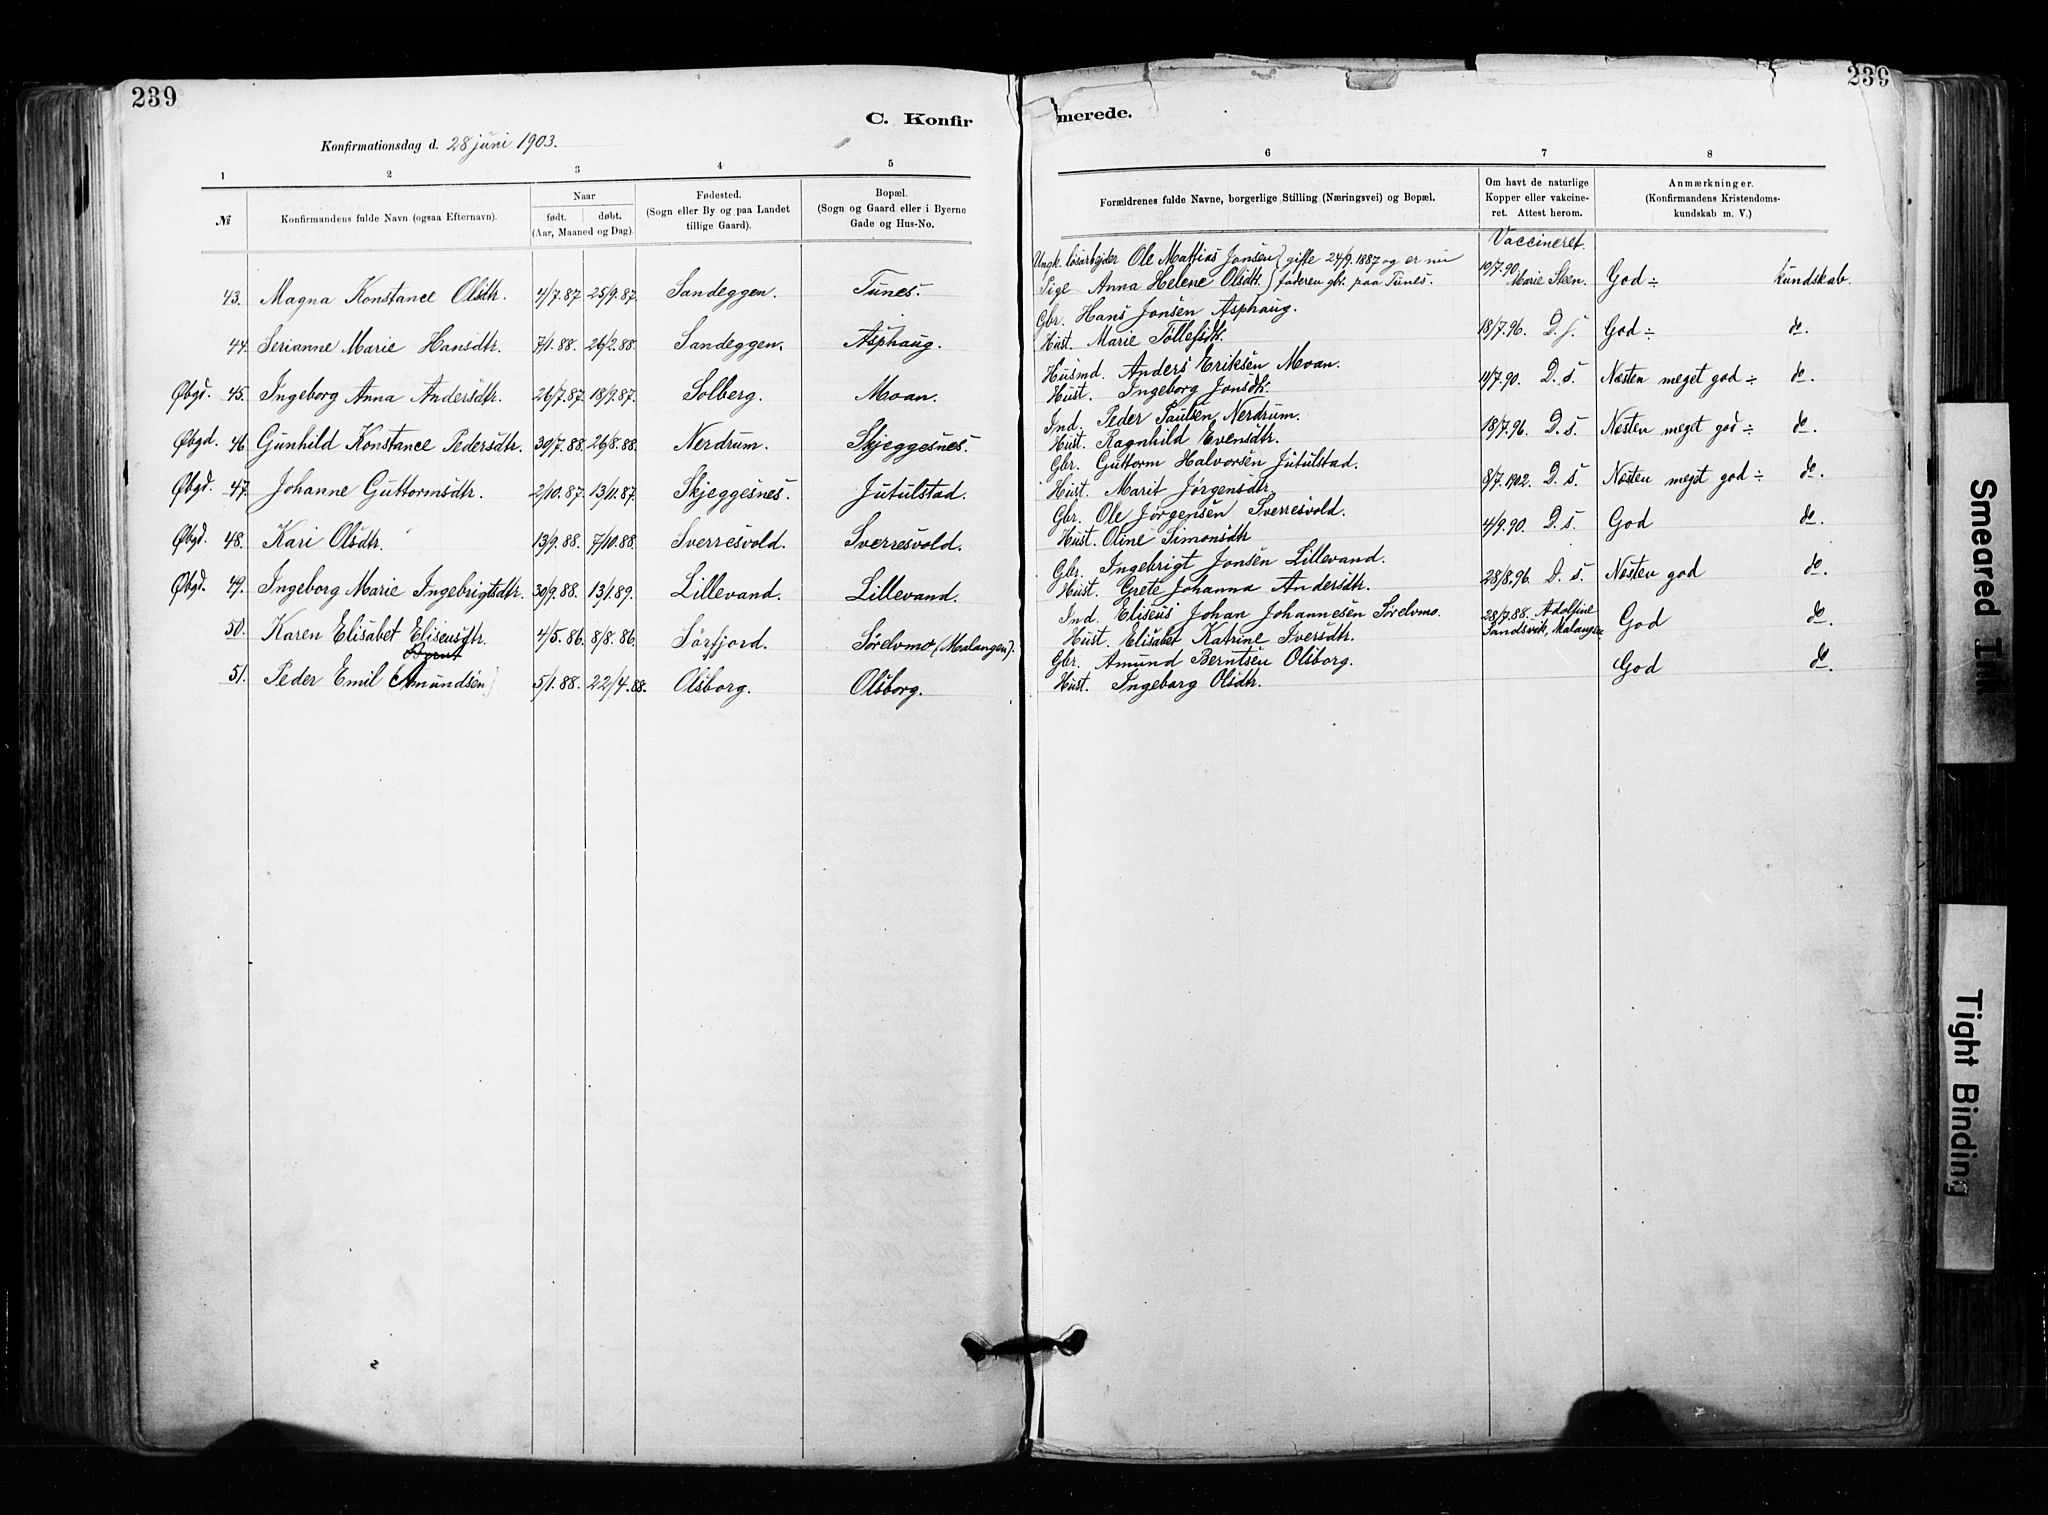 239
239
C. Konfirmerede.
Konfirmationsdag d. 28 juni 1903.
1 2 3 4 5 6 7 8
№
Konfirmandens fulde Navn (ogsaa Efternavn).
Naar
født. døbt.
(Aar, Maaned og Dag).
Fødested.
(Sogn eller By og paa Landet
tillige Gaard).
Bopæl.
(Sogn og Gaard eller i Byerne
Gade og Hus-No.
Forældrenes fulde Navne, borgerlige Stilling (Næringsvei) og Bopæl.
Om havt de naturlige
Kopper eller vakcine-
ret. Attest herom.
Anmærkninger.
(Konfirmandens Kristendoms-
kundskab m. V.)
Vaccineret.
Ungk. løsarbejder Ole Mathias Jonsen (gifte 24/9.1887 og er nu
43. Magna Konstance Olsdtr. 4/7.87 25/9.87. Sandeggen. Tunes. Pige Anna Helene Olsdtr.) faderen gbr. paa Tunes. 19/7.90 Marie Steen. God ÷ kundskab.
Gbr. Hans Jonsen Asphaug.
44. Serianne Marie Hansdtr. 7/1.88. 26/2.88. Sandeggen. Asphaug. Hust. Marie Tollefsdtr. 18/7.96. D. s. God ÷ do.
Husmd. Anders Eriksen Moan.
Øbgd. 45. Ingeborg Anna Andersdtr. 26/7.87. 18/9.87. Solberg. Moan. Hust. Ingeborg Jonsdtr. 11/7.90. D. s. Næsten meget god ÷ do.
Ind. Peder Paulsen Nerdrum.
Øbgd. 46. Gunhild Konstance Pedersdtr. 30/7.88. 26/8.88. Nerdrum. Skjeggesnes. Hust. Ragnhild Evensdtr. 18/7.96. D. s. Næsten meget god ÷ do.
Gbr. Guttorm Halvorsen Jutulstad.
Øbgd. 47. Johanne Guttormsdtr. 2/10.87. 13/11.87. Skjeggesnes. Jutulstad. Hust. Marit Jørgensdtr. 8/7.1902. D. s. Næsten meget god ÷ do.
Gbr. Ole Jørgensen Sverresvold.
Øbgd. 48. Kari Olsdtr. 13/9.88. 7/10.88. Sverresvold. Sverresvold. Hust. Oline Simonsdtr 4/9.90. D. s. God do.
Gbr. Ingebrigt Jonsen Lillevand.
Øbgd. 49. Ingeborg Marie Ingebrigtsdtr. 30/9.88. 13/1.89. Lillevand. Lillevand. Hust. Grete Johanna Andersdtr. 28/8.96. D. s. Næsten god do.
Ind. Eliseus Johan Johannesen Sørelvmo. 28/7.88. Adolfine
50. Karen Elisabet Eliseusdtr. 4/5.86. 8/8.86. Sørfjord. Sørelvmo (Malangen). Hust. Elisabet Katrine Iversdtr. Sandsvik, Malangen God do.
Bernt
Gbr. Amund Berntsen Olsborg.
51. Peder Emil Amundsen 5/1.88. 22/4.88. Olsborg. Olsborg. Hust. Ingeborg Olsdtr. God do.
Smeared Ink
Tight Binding